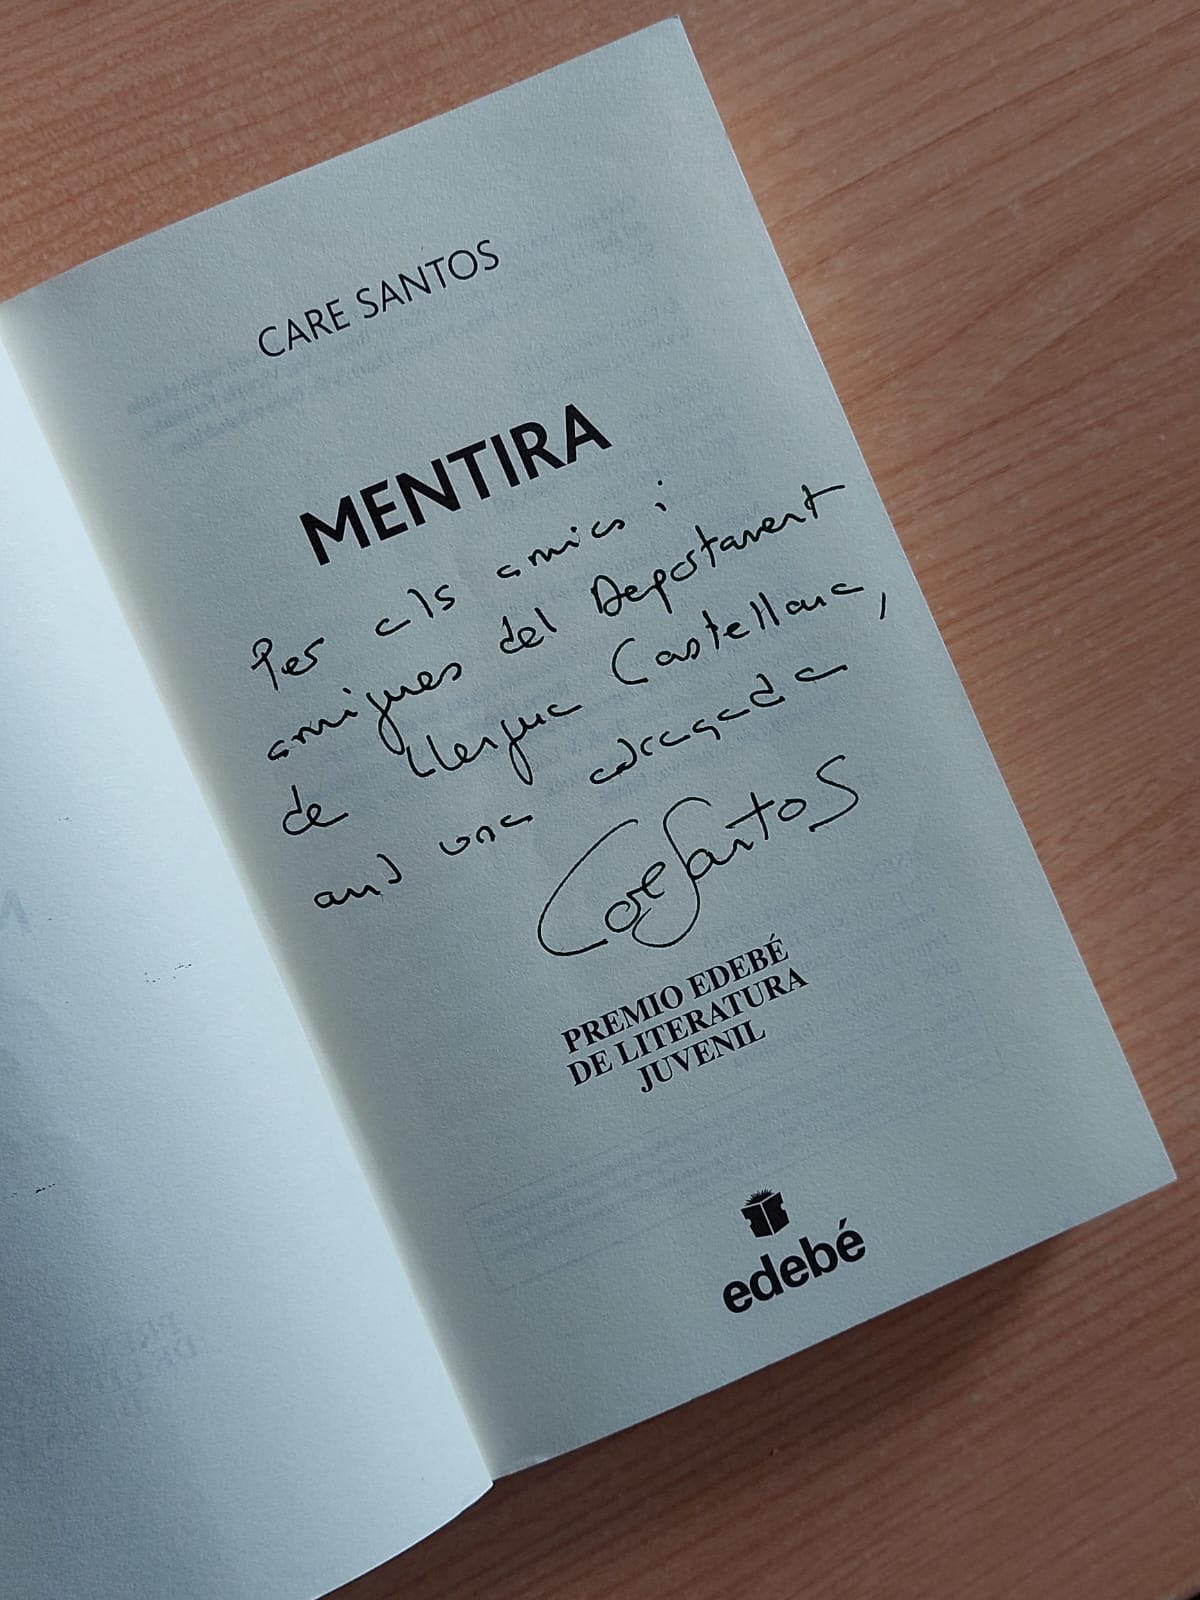 CARE SANTOS
MENTIRA
Per als amics i
amigues del Departament
de Llengua Castellana,
amb una abraçada
Care Santos
PREMIO EDEBÉ
DE LITERATURA
JUVENIL
edebé